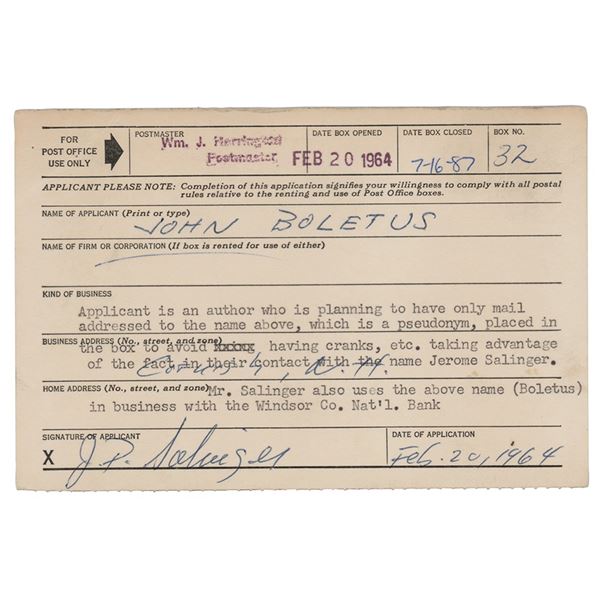 FOR POST OFFICE USE ONLY
POSTMASTER
Wm. J. Herrington
Postmaster
DATE BOX OPENED
FEB 20 1964
DATE BOX CLOSED
7-16-87
BOX NO.
32
APPLICANT PLEASE NOTE: Completion of this application signifies your willingness to comply with all postal
rules relative to the renting and use of Post Office boxes.
NAME OF APPLICANT (Print or type)
JOHN BOLETUS
NAME OF FIRM OR CORPORATION (If box is rented for use of either)
KIND OF BUSINESS
Applicant is an author who is planning to have only mail
addressed to the name above, which is a pseudonym, placed in
BUSINESS ADDRESS (No., street, and zone)
the box to avoid xxxxx having cranks, etc. taking advantage
of the fact in their contact with the name Jerome Salinger.
Cornish, N.H.
HOME ADDRESS (No., street, and zone)
Mr. Salinger also uses the above name (Boletus)
in business with the Windsor Co. Nat'l. Bank
SIGNATURE OF APPLICANT
X J.D. Salinger
DATE OF APPLICATION
Feb. 20, 1964